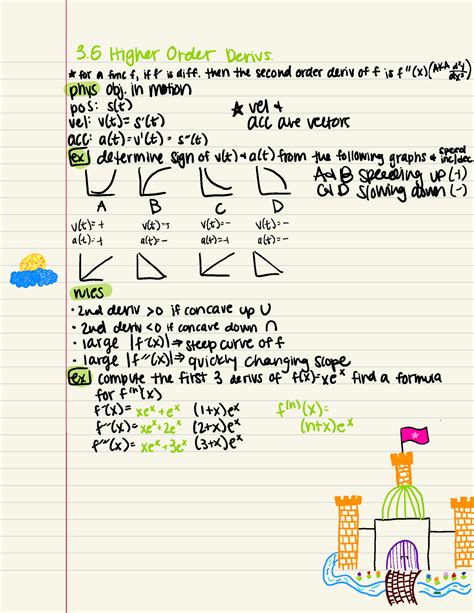 3.6 Higher Order Derivs.
* for a func f, if f' is diff. then the second order deriv of f is f"(x) (AKA d²y/dx²)
phys obj. in motion
pos: s(t)
vel: v(t)=s'(t)
acc: a(t)=v'(t)=s"(t)
* vel +
acc are vectors
ex determine sign of v(t)+a(t) from the following graphs + speed inc/dec
A B C D
A+B speeding up (+)
C+D slowing down (-)
v(t)=+ v(t)=+ v(t)=- v(t)=-
a(t)=+ a(t)=- a(t)=+ a(t)=-
rules
• 2nd deriv >0 if concave up ∪
• 2nd deriv <0 if concave down ∩
• large |f'(x)| ⇒ steep curve of f
• large |f"(x)| ⇒ quickly changing slope
ex compute the first 3 derivs of f(x)=xeˣ find a formula
for f⁽ⁿ⁾(x)
f'(x)= xeˣ+eˣ (1+x)eˣ
f"(x)= xeˣ+2eˣ (2+x)eˣ
f'''(x)= xeˣ+3eˣ (3+x)eˣ
f⁽ⁿ⁾(x)=
(n+x)eˣ